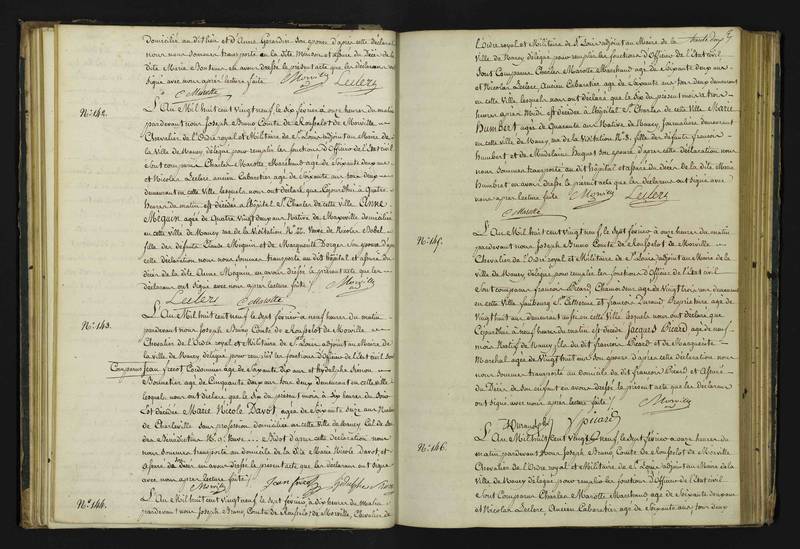 Domicilié au dit lieu et d'Anne Gerardin son épouse d'après cette déclaration
nous nous sommes transporté en la dite Maison et assuré du Décès
dite Marie en avons dressé le présent acte que les déclarans ont
Signé avec nous après lecture faite
Morville Leclerc
C Marotte
N.° 142.
L'An Mil huit cent Vingt neuf le Six février à onze heures du matin
pardevant nous Joseph Bruno Comte de Rousselot de Morville
Chevalier de l'Ordre royal et Militaire de S.t Louis adjoint au Maire de
la Ville de Nancy délégué pour remplir les fonctions d'Officier de l'Etat civil
Sont comparus Charles Marotte Marchand agé de Soixante deux ans
et Nicolas Leclerc ancien Cabaretier agé de Soixante ans tous deux
demeurant en cette Ville lesquels nous ont déclaré que Cejourdhui à Quatre
heures du matin est décédée à l'hôpital S.t Charles de cette ville Anne
Moquin agée de Quatre Vingt deux ans Native de Maxéville domiciliée
en cette ville de Nancy rue de la Visitation N.° 22. Veuve de Nicolas
fille des défunts Claude Moquin et de Marguerite son épouse d'après
cette déclaration nous nous sommes transporté au dit Hôpital et assuré du
décès de la dite Anne Moquin en avons dressé le présent acte que les
déclarans ont signé avec nous après lecture faite
Morville
Leclerc C Marotte
N.° 143.
L'An Mil huit cent Vingt neuf le Sept février à neuf heures du matin
pardevant nous Joseph Bruno Comte de Rousselot de Morville
Chevalier de l'Ordre royal et Militaire de S.t Louis adjoint au Maire de
la ville de Nancy délégué pour remplir les fonctions d'Officier de l'Etat civil Sont
Comparus Jean Cordonnier agé de Soixante dix ans et Hydulphe Simon
Bonnetier agé de Cinquante deux ans tous deux demeurant en cette ville
lesquels nous ont déclaré que le Six du présent mois à Six heures du Soir
est décédée Marie Nicole Davot agée de Soixante Onze ans Native
de Charleville Sans profession domiciliée en cette Ville de Nancy
Bénédictins N.° 9. Veuve d'après cette déclaration nous
nous sommes transporté au domicile de la dite Marie Nicole Davot, et
assuré du décès en avons dressé le présent acte que les déclarans ont Signé
avec nous après lecture faite
Morville
N.° 144.
L'An Mil huit cent Vingt neuf le Sept février à dix heures du matin
pardevant nous Joseph Bruno Comte de Rousselot de Morville, Chevalier de
trente deux
l'Ordre royal et Militaire de S.t Louis adjoint au Maire de la
Ville de Nancy délégué pour remplir les fonctions d'Officier de l'Etat civil
Sont Comparus Charles Marotte Marchand agé de Soixante deux ans
et Nicolas Leclerc, Ancien Cabaretier agé de Soixante ans tous deux demeurant
en cette Ville, lesquels nous ont déclaré que le Six du présent mois à trois
heures après Midi est décédée à l'hôpital S.t Charles de cette Ville Marie
Humbert agée de Quarante ans Native de Nancy Journalière demeurant
en cette ville de Nancy, rue de la Visitation N.° 8. fille des défunts françois
Humbert et de Madelaine son épouse d'après cette déclaration nous
nous sommes transporté au dit hôpital et assuré du décès de la dite Marie
Humbert en avons dressé le présent acte que les déclarans ont signé avec
nous après lecture faite
Morville Leclerc
C Marotte
N.° 145.
L'An Mil huit cent Vingt neuf, le Sept février à onze heures du matin
pardevant nous Joseph Bruno Comte de Rousselot de Morville
Chevalier de l'Ordre royal et Militaire de S.t Louis, adjoint au Maire de la
Ville de Nancy délégué, pour remplir les fonctions d'Officier de l'Etat civil
Sont comparus françois Picard agé de Vingt huit ans demeurant
en cette Ville faubourg S.te Catherine et françois Durand Propriétaire agé de
Vingt huit ans demeurant aussi en cette Ville lesquels nous ont déclaré que
Cejourdhui à neuf heures du matin est décédé Jacques Picard agé de neuf
mois Natif de Nancy, fils du dit françois Picard et de Marguerite
Marchal agée de Vingt huit ans Son épouse d'après cette déclaration nous
nous sommes transporté au domicile du dit françois Picard et Assuré
du Décès de son enfant en avons dressé le présent acte que les déclarans
ont signé avec nous après lecture faite
Morville
Durand Picard
N.° 146.
L'An Mil huit cent Vingt Neuf, le Sept février à onze heures du
matin, pardevant nous Joseph Bruno Comte de Rousselot de Morville
Chevalier de l'Ordre royal et Militaire de S.t Louis adjoint au Maire de la
Ville de Nancy délégué pour remplir les fonctions d'Officier de l'Etat civil
Sont Comparus Charles Marotte Marchand agé de Soixante deux ans
et Nicolas Leclerc, Ancien Cabaretier agé de Soixante ans, tous deux